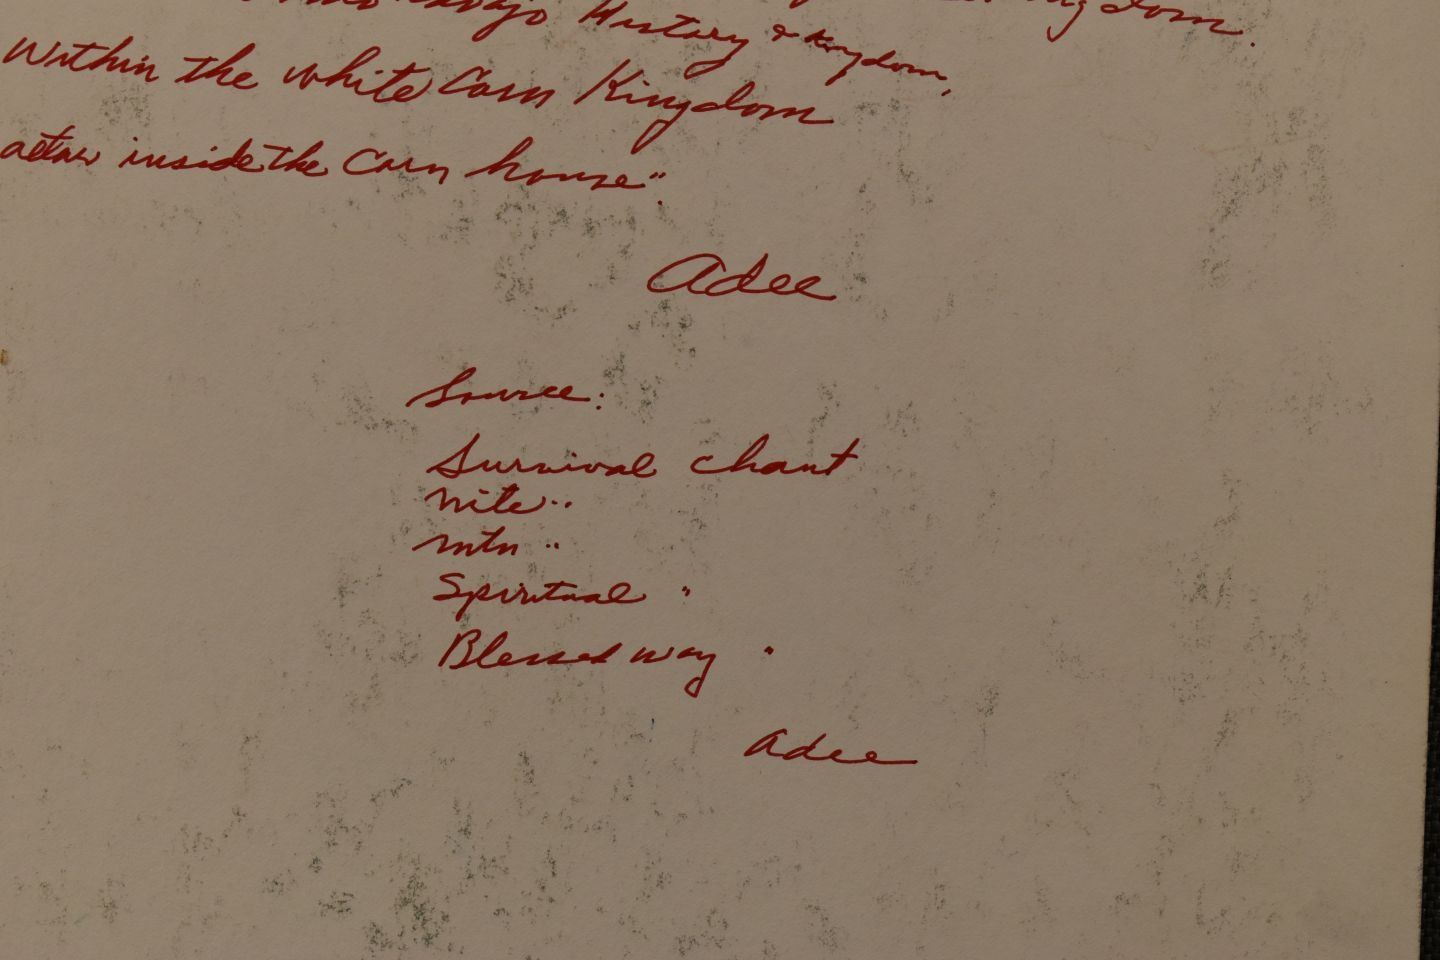 Kingdom.
Navajo History & Kingdom,
Within the white Corn Kingdom
inside the Corn house".
Adee
Source:
Survival chant
nite "
mtn "
Spiritual "
Blessed way "
Adee